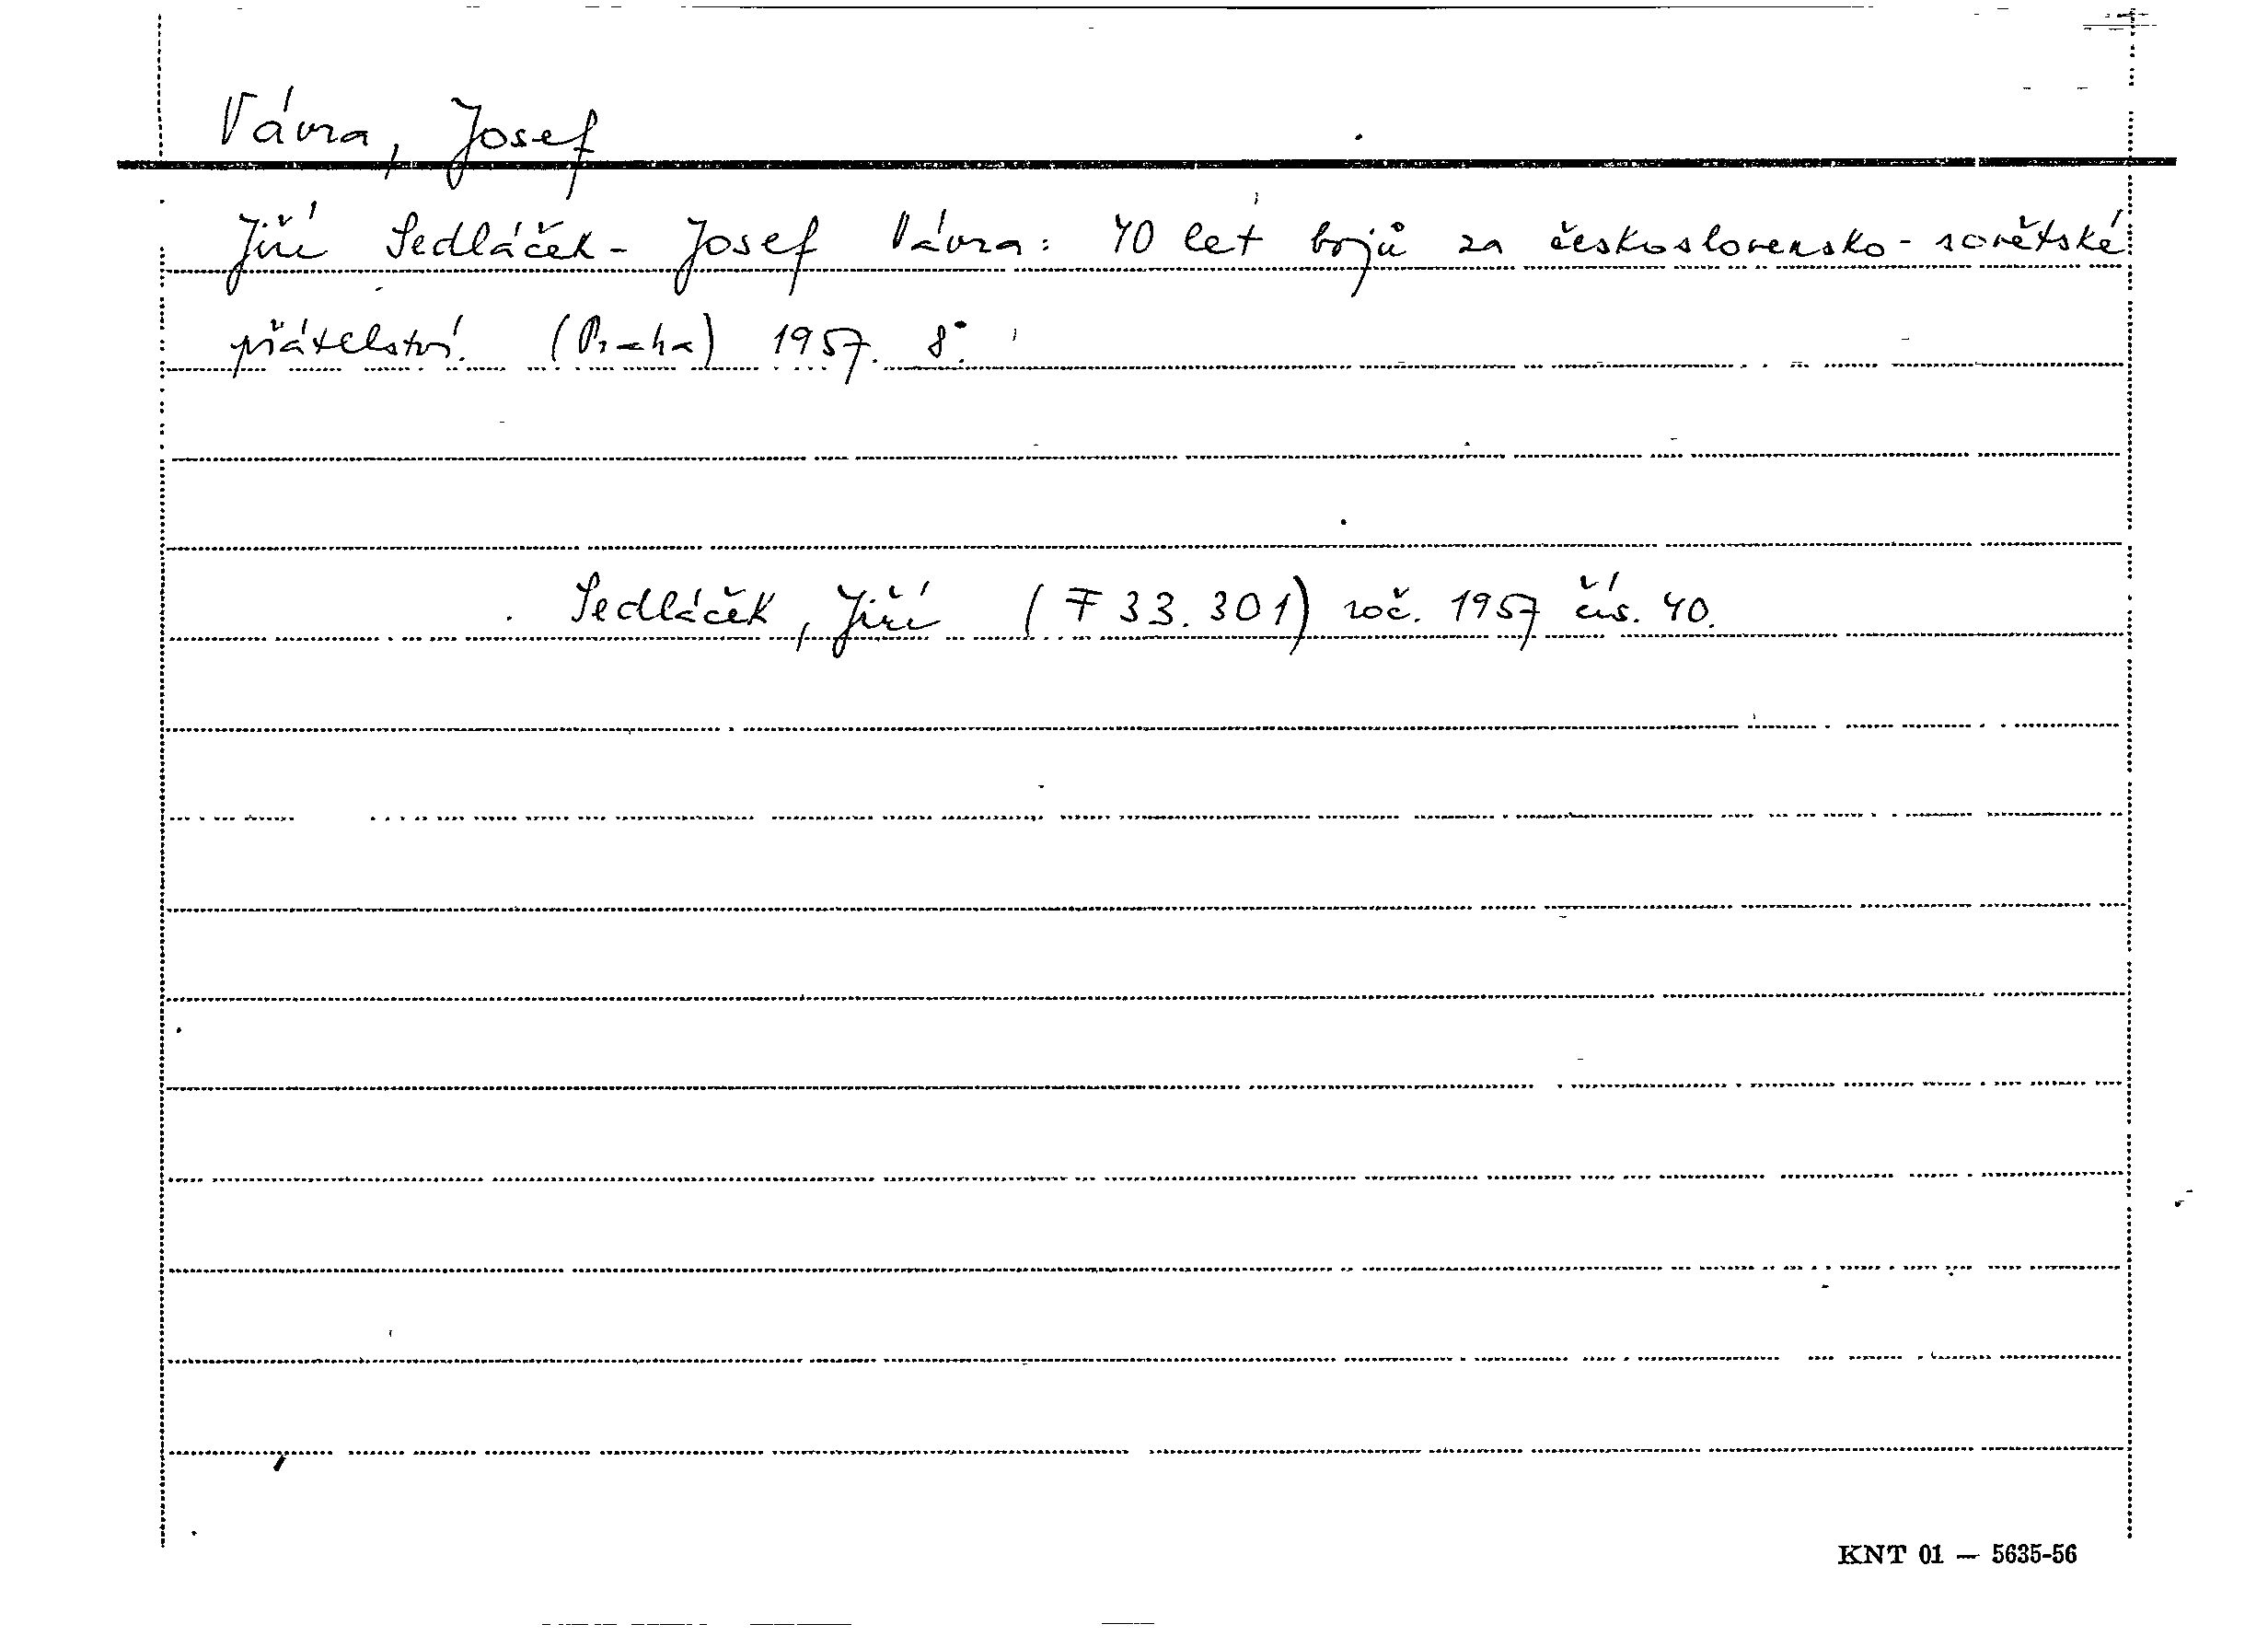 Vávra, Josef
Jiří Sedláček - Josef Vávra: 40 let bojů za československo-sovětské
přátelství. (Praha) 1957. 8°.
Sedláček, Jiří (F 33.301) roč. 1957 čís. 40.
KNT 01 — 5635-56